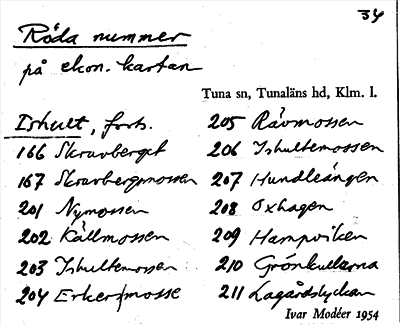 34
Röda nummer
på ekon. kartan
Tuna sn, Tunaläns hd, Klm. l.
Ishult, forts.
166 Skruvberget
167 Skruvbergsmossen
201 Nymossen
202 Källmossen
203 Ishultemossen
204 Erkersmosse
205 Rävmossen
206 Ishultemossen
207 Hundleängen
208 Oxhagen
209 Hampviken
210 Grönkullarna
211 Lagårdslyckan
Ivar Modéer 1954